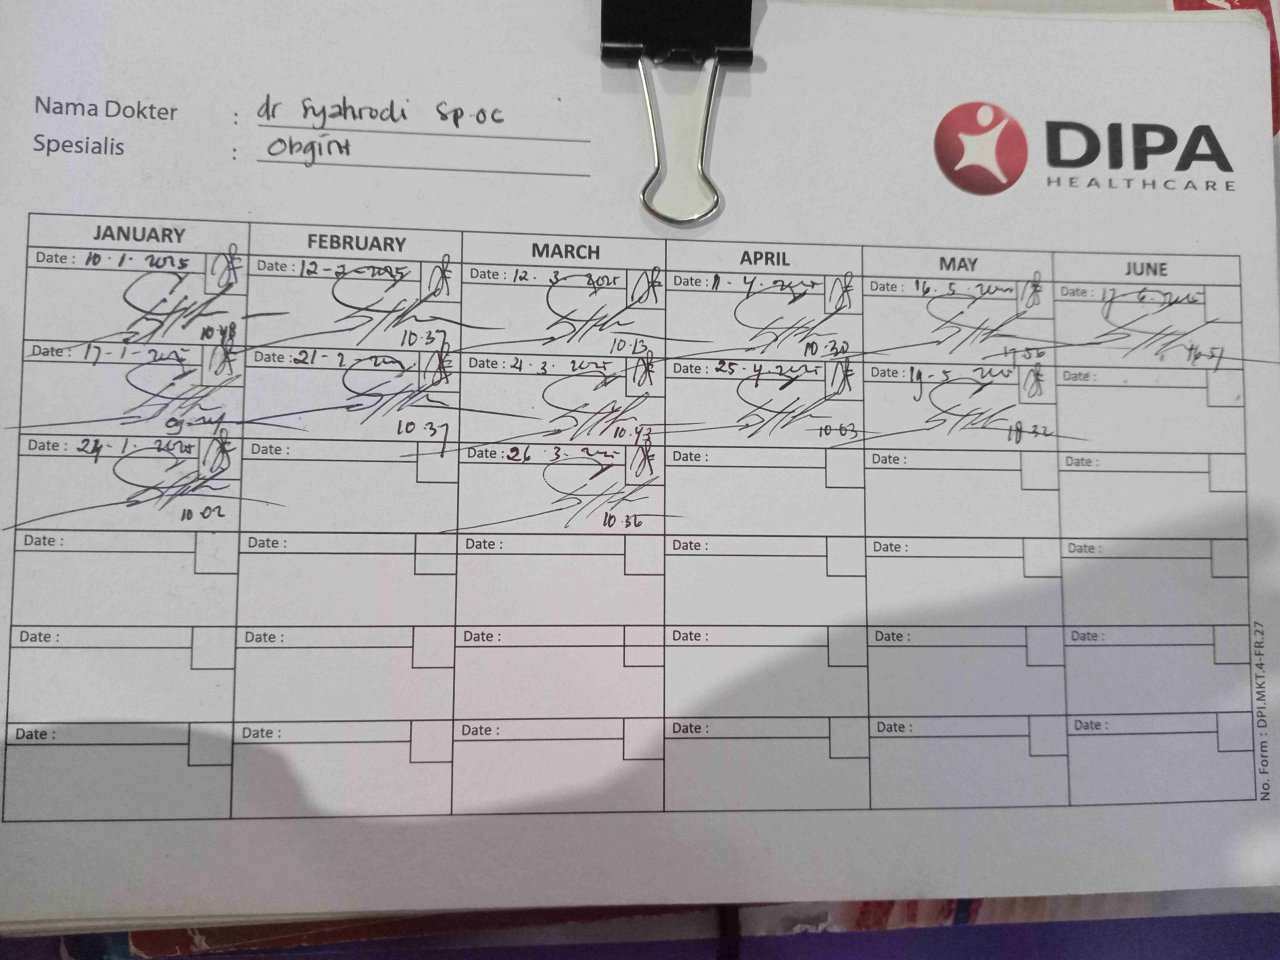 Nama Dokter : dr Syahrodi Sp.OG
Spesialis : Obgin
DIPA
HEALTHCARE
JANUARY FEBRUARY MARCH APRIL MAY JUNE
Date : 10-1-2025 Date : 12-2-2025 Date : 12-3-2025 Date : 11-4-2025 Date : 16-5-2025 Date : 17-6-2025
10.48 10.37 10.13 10.30 17.56 16.51
Date : 17-1-2025 Date : 21-2-2025 Date : 21-3-2025 Date : 25-4-2025 Date : 19-5-2025 Date :
10.37 10.43 10.03 18.32
Date : 24-1-2025 Date : Date : 26-3-2025 Date : Date : Date :
10.02 10.36
Date : Date : Date : Date : Date : Date :
Date : Date : Date : Date : Date : Date :
Date : Date : Date : Date : Date : Date :
No. Form : DPI.MKT.4-FR.27